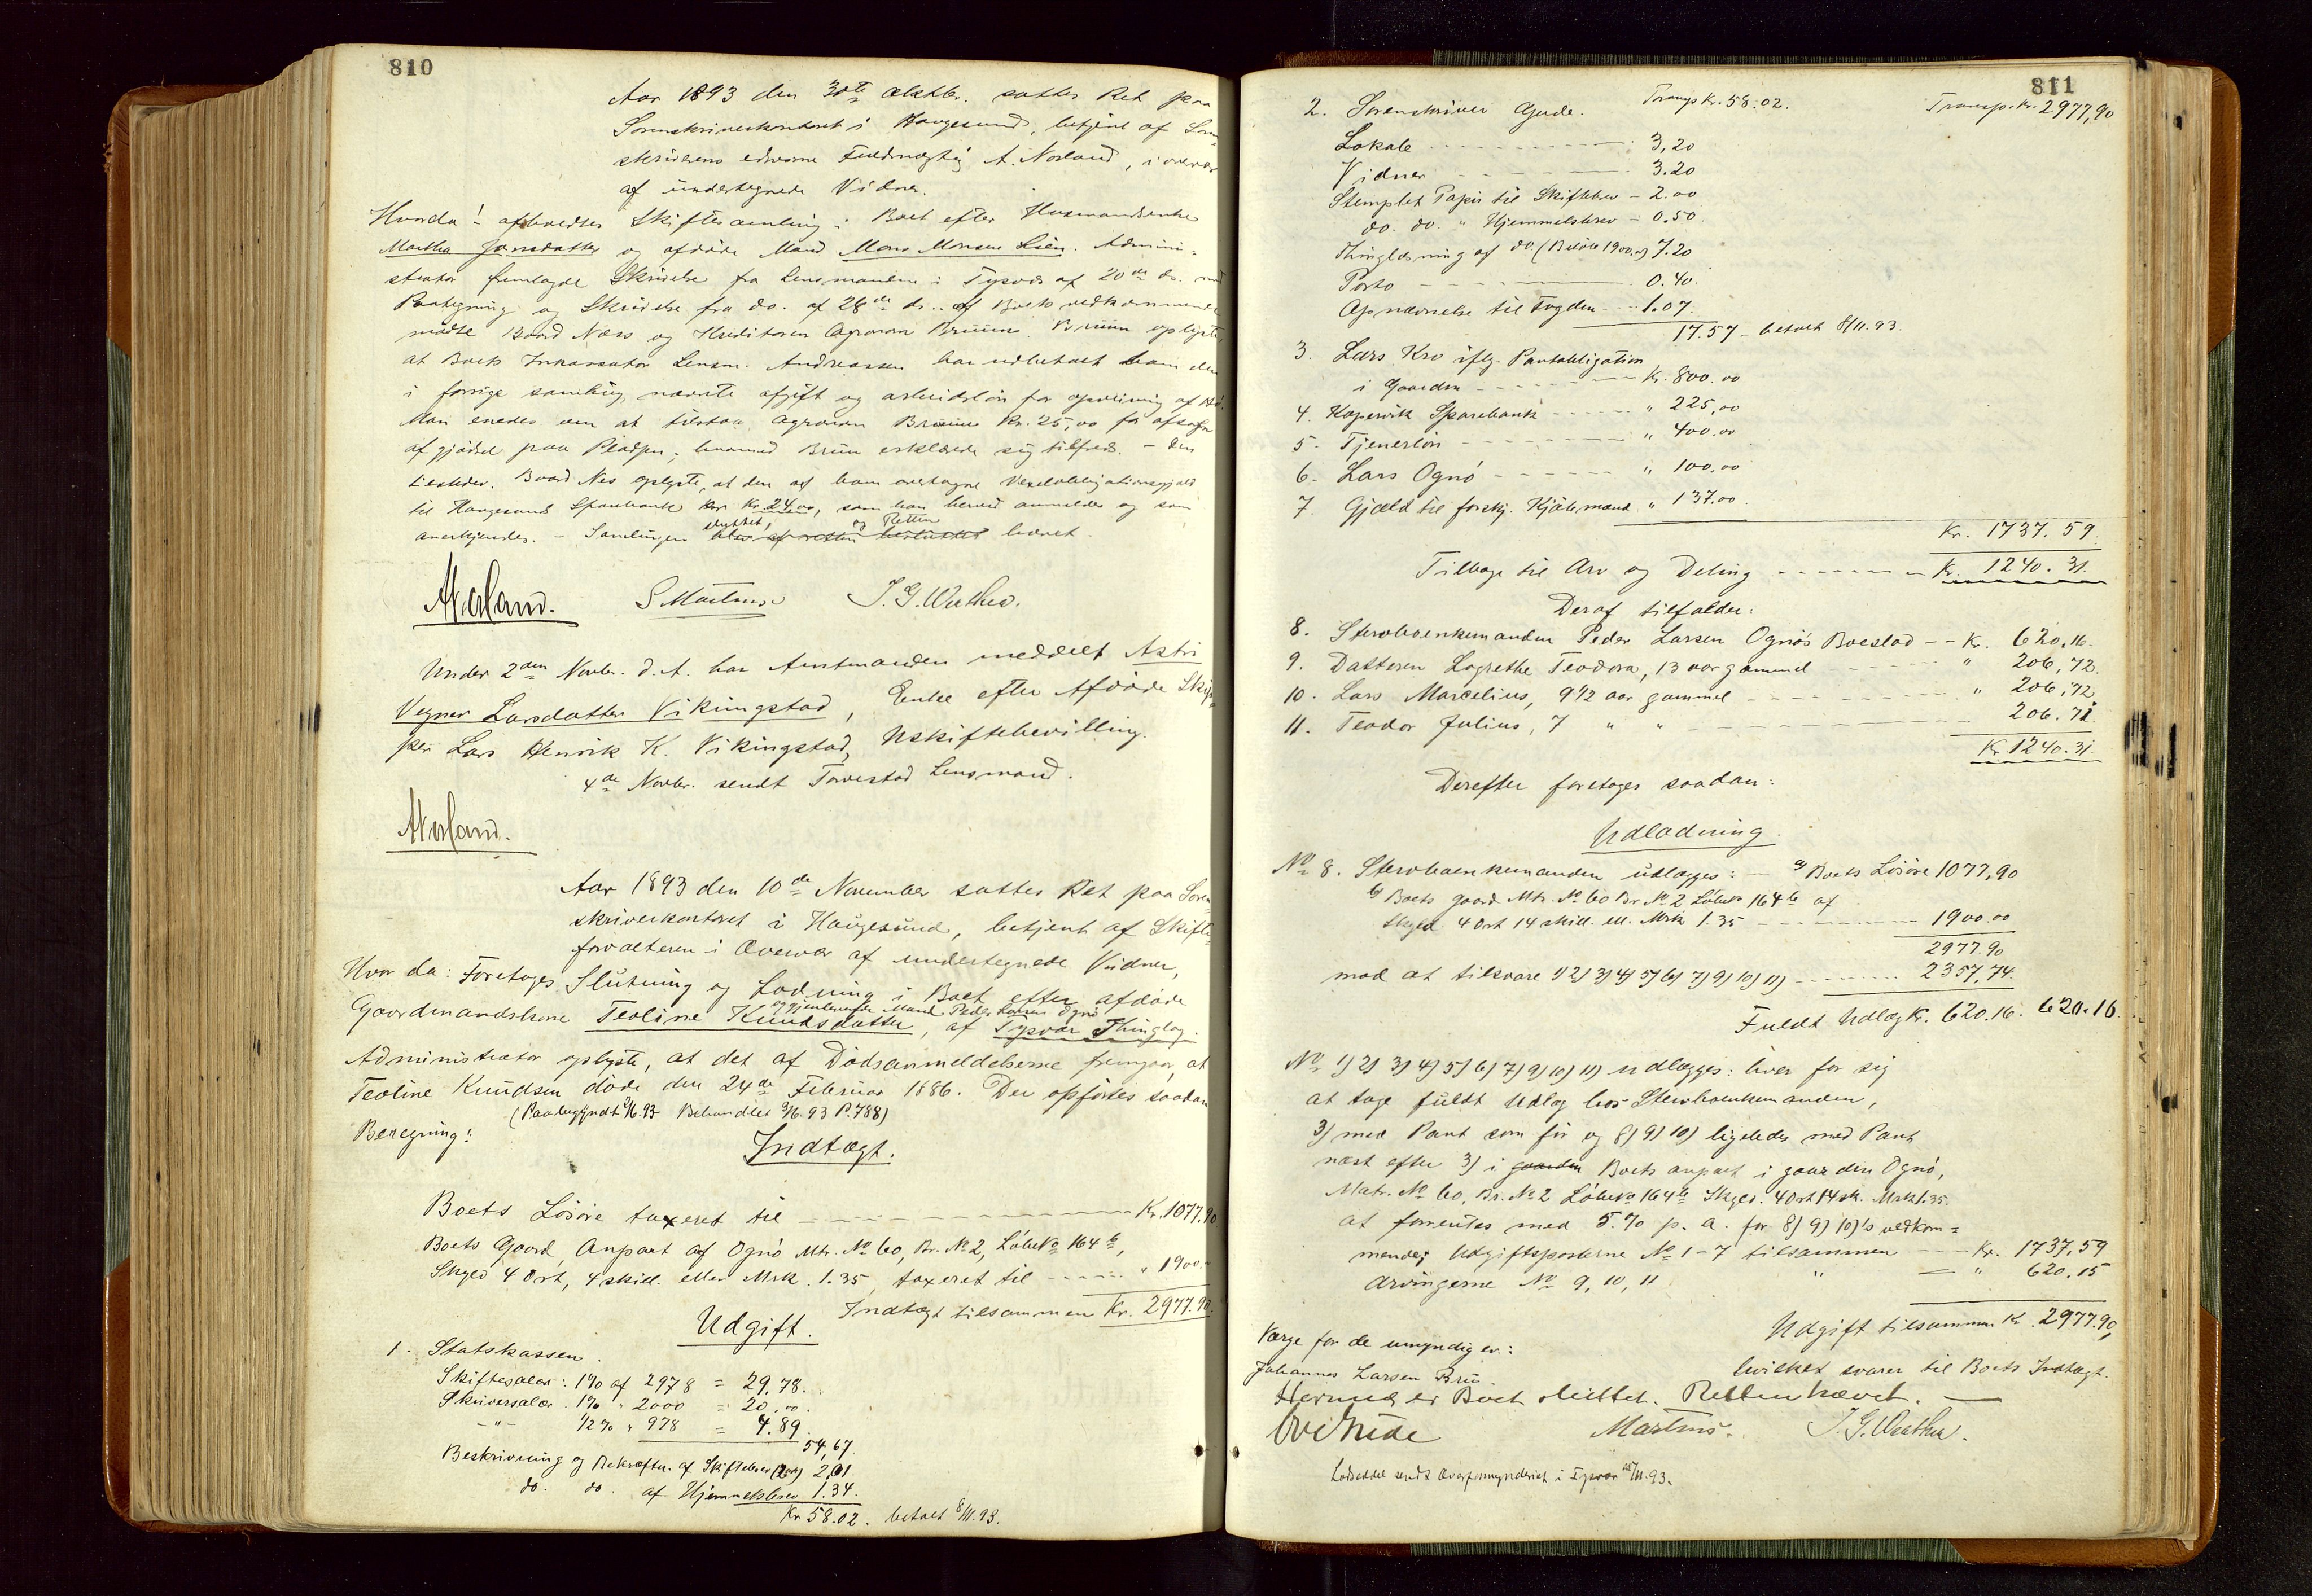 810
Aar 1893 den 30te Oktbr. sattes Ret paa
Sorenskriverkontoret i Haugesund, betjent af Soren-
skriverens edsvorne Fuldmægtig A. Norland, i overvær
af undertegnede Vidner.
Hvorda! afholdtes Skiftesamling i Boet efter Husmandsenke
Martha Jansdatter og afdøde Mand Mons Monsen Lien. Admini-
strator fremlagde Skrivelse fra Lensmanden i Tysvær af 20de ds. med
Paategning og Skrivelse fra do. af 28de ds. af Boets vedkommende
mødte Baard Næs og Kreditoren Agronom Bruun. Bruun oplyste,
at Boets Inkassator Lensm. Andreassen har udbetalt ham den
i forrige samling nævnte afgift og arbeidsløn for
Man enedes om at tilstaa Agronom Bruun Kr. 25,00 for
af gjødsel paa Pladsen, hvormed Bruun erklærede sig tilfreds. – Den
tilstede Baard Nes oplyste, at den af ham overtagne Vexelobligationsgjæld
til Haugesunds Sparebank var Kr. 24,00, som han herved anmelder og som
anerkjendes. – Samlingen sluttet, og Retten hævet.
ANorland. S Martinus J. G. Werthes.
Under 2den Novbr. d. A. har Amtmanden meddelt Astri
Vegner Larsdatter Vikingstad, Enke efter Afdøde Skip-
per Lars Henrik K. Vikingstad, Uskiftebevilling.
4de Novbr. sendt Torvestad Lensmand.
ANorland.
Aar 1893 den 10de November sattes Ret paa Soren-
skriverkontoret i Haugesund, betjent af Skifte-
forvalteren i Overvær af undertegnede Vidner,
Hvor da: Foretoges Slutning og Lodning i Boet efter afdøde
og gjenlevende Mand Peder Larsen Ognø
Gaardmandskone Teoline Knudsdatter, af Tysvær Thinglag.
Administrator oplyste, at det af Dødsanmeldelserne fremgaar, at
Teoline Knudsen døde den 24de Februar 1886. Der opførtes saadan
(Paabegyndt 9/6.93 Behandlet 9/6.93 P. 788)
Beregning:
Indtægt.
Boets Løsøre taxeret til Kr. 1077.90
Boets Gaard, Anpart af Ognø Mtr. No 60, Br. No 2, Løbeno 164b,
Skyld 4 Ort, 4 skill. eller Mrk. 1.35, taxeret til " 1900.-
Indtægt tilsammen Kr. 2977.90
Udgift.
1. Statskassen.
Skiftesalær: 1% af 2978 = 29.78.
Skriversalær. 1% " 2000 = 20.00.
-"- 1/2% " 978 = 4.89.
54,67
Beskrivning og Bekræftn. af Skiftebrev 2,01
do. do. af Hjemmelsbrev 1.34.
Kr 58.02. betalt 8/11.93.
811
Transp Kr. 58.02. Transp. Kr. 2977,90
2. Sorenskriver Gude.
Lokale 3,20
Vidner 3.20
Stemplet Papir til Skiftebrev – 2.00
do. do. " Hjemmelsbrev – 0.50
Thinglæsning af do. (Beløb 1900.-) 7.20
Porto 0.40.
Opnævnelse til Fogden 1.07.
17.57 – betalt 8/11.93.
3. Lars Kro iflg. Pantobligation
i Gaarden Kr. 800.00
4. Kopervik Sparebank " 225,00
5. Tjenerløn " 400.00
6. Lars Ognø " 100.00
7. Gjæld til forskj. Kjøbmænd " 137.00
Kr. 1737.59.
Tilbage til Arv og Deling Kr. 1240.31.
Deraf tilfalder:
8. Stervboenkemanden Peder Larsen Ognøs Boeslod – Kr. 620.16.
9. Datteren Lagrethe Teodora, 13 aar gammel " 206,72
10. Lars Marcelius, 9 1/2 aar gammel " 206,72
11. Teodor Julius, 7 " " 206.71
Kr 1240.31
Derefter foretoges saadan:
Udlodning.
No 8. Stervboenkemanden udlægges: – a) Boets Løsøre 1077,90
b) Boets gaard Mtr. No 60 Br No 2 Løbeno 164b af
Skyld 4 Ort 14 skill. ell. Mrk 1.35 1900.00
2977.90
mod at tilsvare 1) 2) 3) 4) 5) 6) 7) 9) 10) 11) 2357.74.
Fuldt Udlæg Kr. 620.16. 620.16
No 1) 2) 3) 4) 5) 6) 7) 9) 10) 11) udlægges: hver for sig
at tage fuldt Udlæg hos Stervboenkemanden,
3) med Pant som før og 8) 9) 10) ligeledes med Pant
næst efter 3) i gaarden Boets anpart i gaarden Ognø,
Matr. No 60, Br. No 2 Løbeno 164b Skyld: 4 Ort 14 sk. Mrk 1.35.
at forrentes med 5.% p. a. for 8) 9) 10)'s vedkom=
mende; Udgiftsposterne No 1 – 7 tilsammen Kr. 1737,59
Arvingerne No 9, 10, 11 " – " 620.15
Udgift tilsammen Kr. 2977.90,
Værge for de umyndige er:
hvilket svarer til Boets Indtægt.
Johannes Larsen Bru.
Hermed er Boet sluttet. Retten hævet. –
Ove Gude Martinus. J. G. Werthes.
Lodseddel sendt Overformynderiet i Tysvær /11.93.